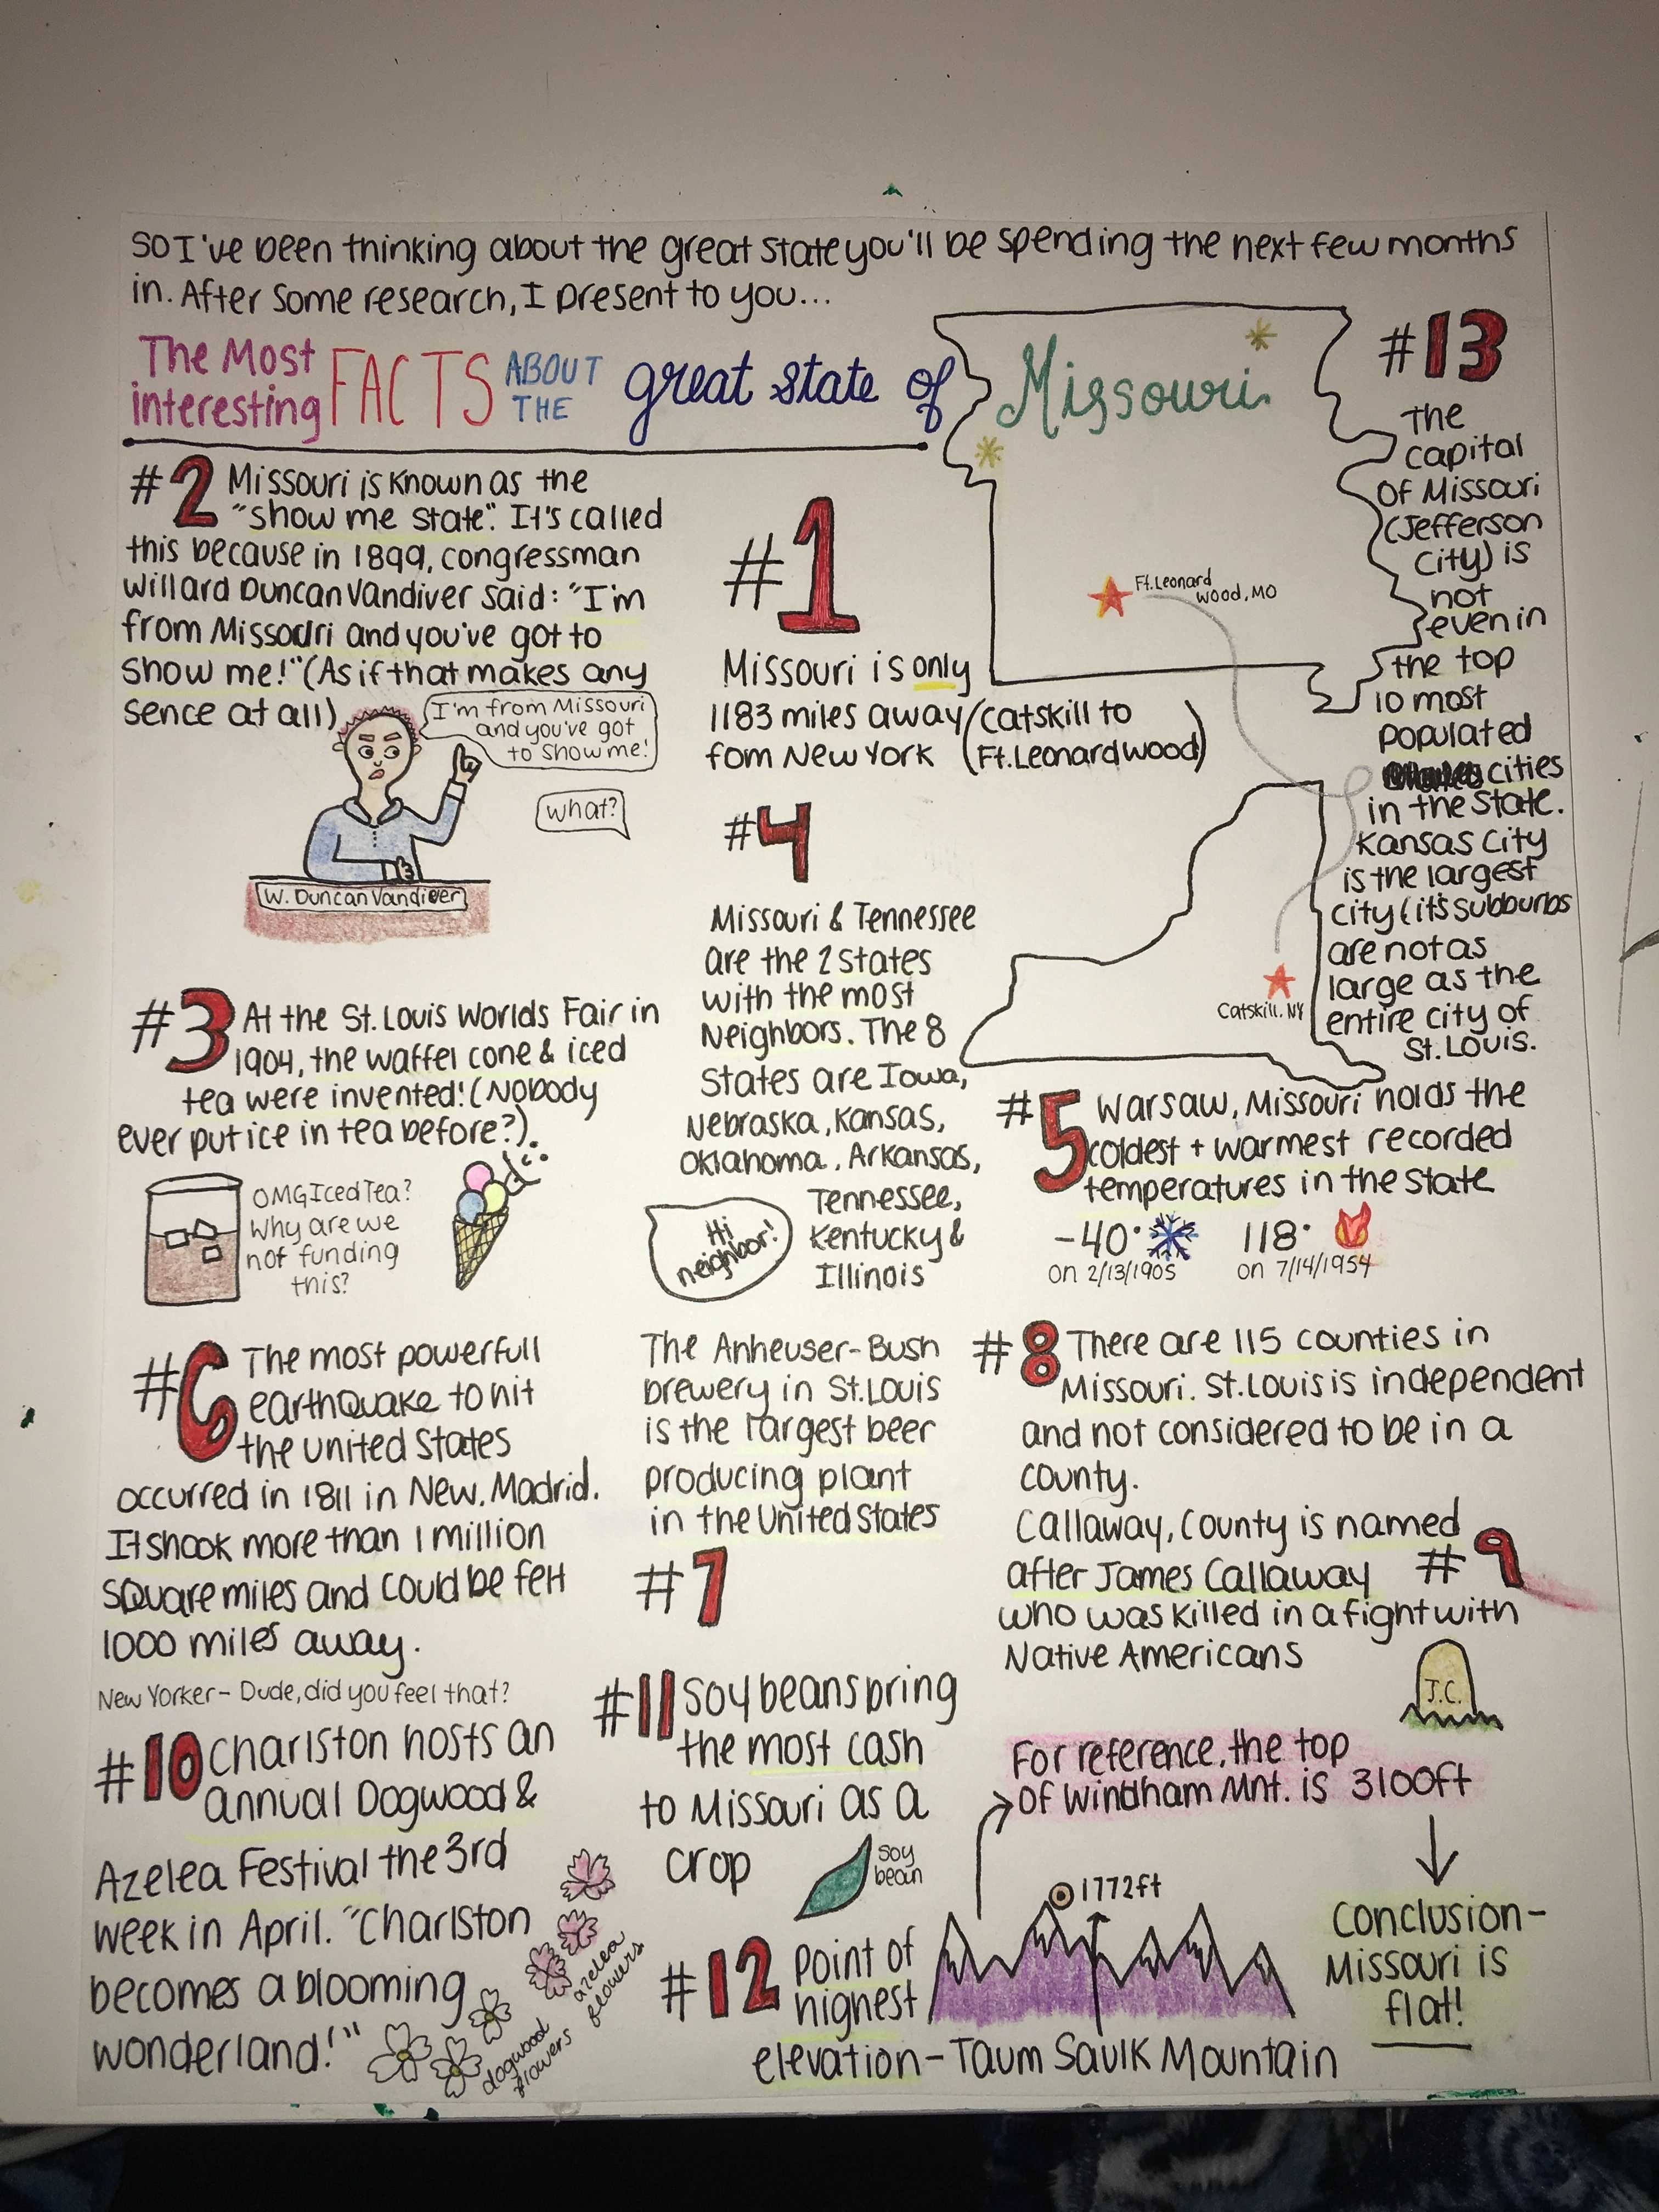 So I've been thinking about the great state you'll be spending the next few months
in. After some research, I present to you...
The Most
interesting
FACTS
ABOUT
THE
great state of
Missouri
#1
Missouri is only
1183 miles away
fom New York
(Catskill to
Ft. Leonardwood)
Ft. Leonard
Wood, MO
Catskill, NY
#2 Missouri is known as the
"show me state". It's called
this because in 1899, congressman
Willard Duncan Vandiver said: "I'm
from Missouri and you've got to
show me!" (As if that makes any
sence at all)
I'm from Missouri
and you've got
to show me!
what?
W. Duncan Vandiver
#3 At the St. Louis Worlds Fair in
1904, the waffel cone & iced
tea were invented! (Nobody
ever put ice in tea before?).
OMG Iced Tea?
Why are we
not funding
this?
#4
Missouri & Tennessee
are the 2 states
with the most
Neighbors. The 8
States are Iowa,
Nebraska, Kansas,
Oklahoma, Arkansas,
Tennessee,
Kentucky &
Illinois
Hi
neighbor!
#5 Warsaw, Missouri holds the
coldest + warmest recorded
temperatures in the state
-40°
on 2/13/1905
118°
on 7/14/1954
#6 The most powerfull
earthquake to hit
the united states
occurred in 1811 in New. Madrid.
It shook more than 1 million
square miles and could be felt
1000 miles away.
New Yorker - Dude, did you feel that?
The Anheuser-Bush
brewery in St. Louis
is the largest beer
producing plant
in the United States
#7
#8 There are 115 counties in
Missouri. St. Louis is independent
and not considered to be in a
county.
Callaway, County is named
after James Callaway #9
who was killed in a fight with
Native Americans
J.C.
#10 Charlston hosts an
annual Dogwood &
Azelea Festival the 3rd
week in April. "Charlston
becomes a blooming
wonderland!"
azelea
flowers
dogwood
flowers
#11 Soybeans bring
the most cash
to Missouri as a
crop
soy
bean
#12 Point of
highest
elevation - Taum Saulk Mountain
1772ft
For reference, the top
of Windham Mnt. is 3100ft
Conclusion-
Missouri is
flat!
#13
The
capital
of Missouri
(Jefferson
City) is
not
even in
the top
10 most
populated
cities
in the state.
Kansas City
is the largest
city (it's subburbs
are not as
large as the
entire city of
St. Louis.